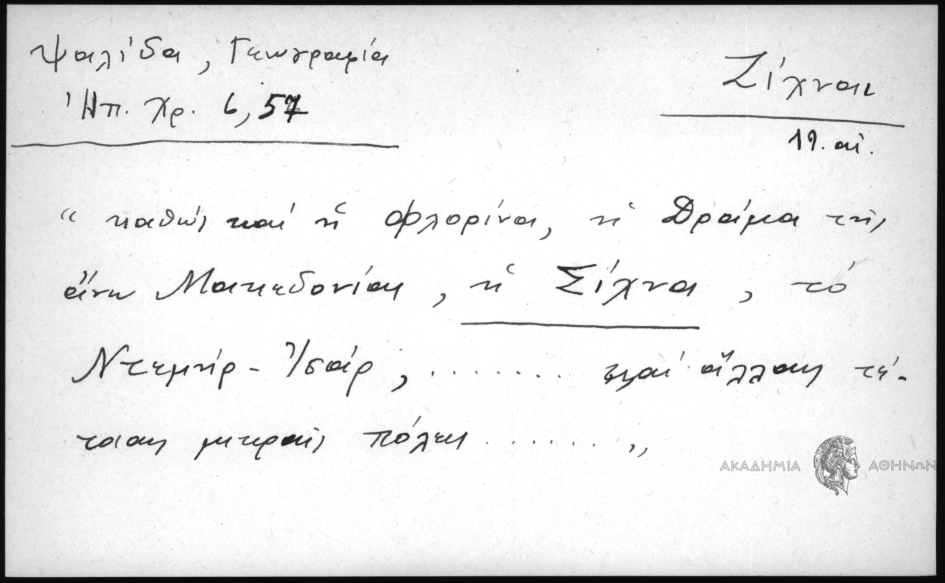 Ψαλίδα, Γεωγραφία
Ἠπ. Χρ. 6, 57
Ζίχναι
19. αἰ.
"καθὼς καὶ ἡ Φλορίνα, ἡ Δράμα τῆς
ἄνω Μακεδονίας, ἡ Σίχνα, τὸ
Ντεμὴρ-Ἱσάρ, ........ καὶ ἄλλαις τέ-
τοιαις μικραὶς πόλεις ......"
ΑΚΑΔΗΜΙΑ ΑΘΗΝΩΝ